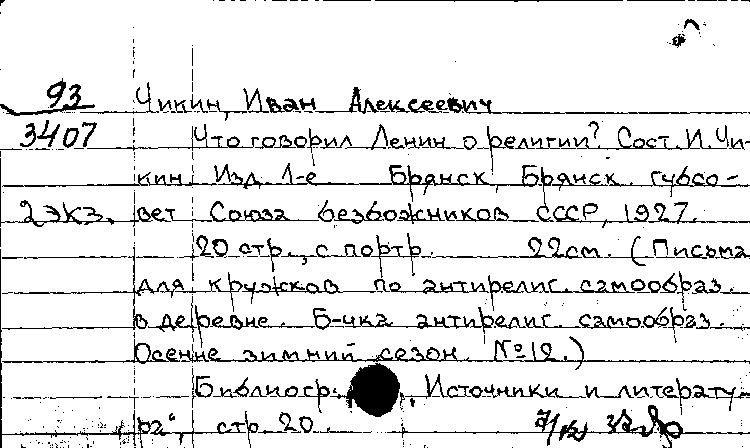 93 Чикин, Иван Алексеевич
3407 Что говорил Ленин о религии? Сост. И. Чи-
кин. Изд. 1-е Брянск, Брянск. губсо-
2 экз. вет Союза безбожников СССР, 1927.
20 стр., с портр. 22см. (Письма
для кружков по антирелиг. самообраз.
в деревне. Б-чка антирелиг. самообраз.
Осенне зимний сезон. №12.)
Библиогр. "Источники и литерату-
ра", стр. 20.